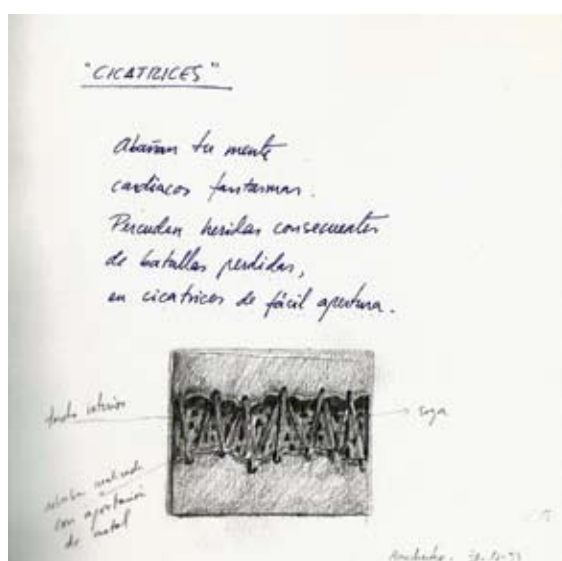 "CICATRICES"
Abañan tu mente
cardíacos fantasmas.
Percuden heridas consecuentes
de batallas perdidas,
en cicatrices de fácil apertura.
fondo interior
soga
realizada
con aportación
de metal